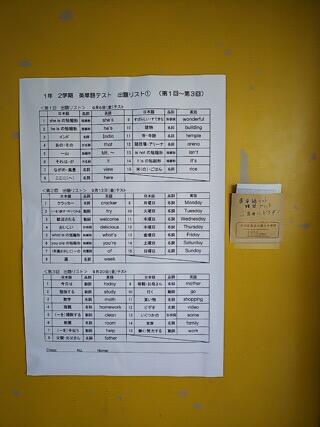 1年 2学期 英単語テスト 出題リスト① (第1回～第3回)
<第1回 出題リスト> 9月6日(金)テスト
日本語 品詞 英語 日本語 品詞 英語
1 she isの短縮形 she's 9 すばらしい・すてきな wonderful
2 he isの短縮形 he's 10 建物 名詞 building
3 インド 名詞 India 11 寺・寺院 名詞 temple
4 あの・その that 12 競技場・アリーナ 名詞 arena
5 13 is notの短縮形 isn't
6 それは・が it 14 it isの短縮形 it's
7 ながめ・風景 名詞 view 15 名詞 rice
8 ここに(へ) here
<第2回 出題リスト> 9月13日(金)テスト
日本語 品詞 英語 日本語 品詞 英語
1 クラッカー 名詞 cracker 9 月曜日 名詞 Monday
2 動詞 try 10 火曜日 名詞 Tuesday
3 歓迎される welcome 11 水曜日 名詞 Wednesday
4 おいしい delicious 12 木曜日 名詞 Thursday
5 what isの短縮形 what's 13 金曜日 名詞 Friday
6 you areの短縮形 you're 14 土曜日 名詞 Saturday
7 of 15 日曜日 名詞 Sunday
8 週 名詞 week
<第3回 出題リスト> 9月20日(金)テスト
日本語 品詞 英語 日本語 品詞 英語
1 今日は today 9 母親・お母さん 名詞 mother
2 勉強する 動詞 study 10 行く 動詞 go
3 数学 名詞 math 11 買い物 名詞 shopping
4 宿題 名詞 homework 12 ビデオ 名詞 video
5 (～を)掃除する 動詞 clean 13 いくつかの some
6 部屋 名詞 room 14 家族 名詞 family
7 (～を)手伝う 動詞 help 15 働く・努力する 動詞 work
8 父親・お父さん 名詞 father
Class: No. Name: